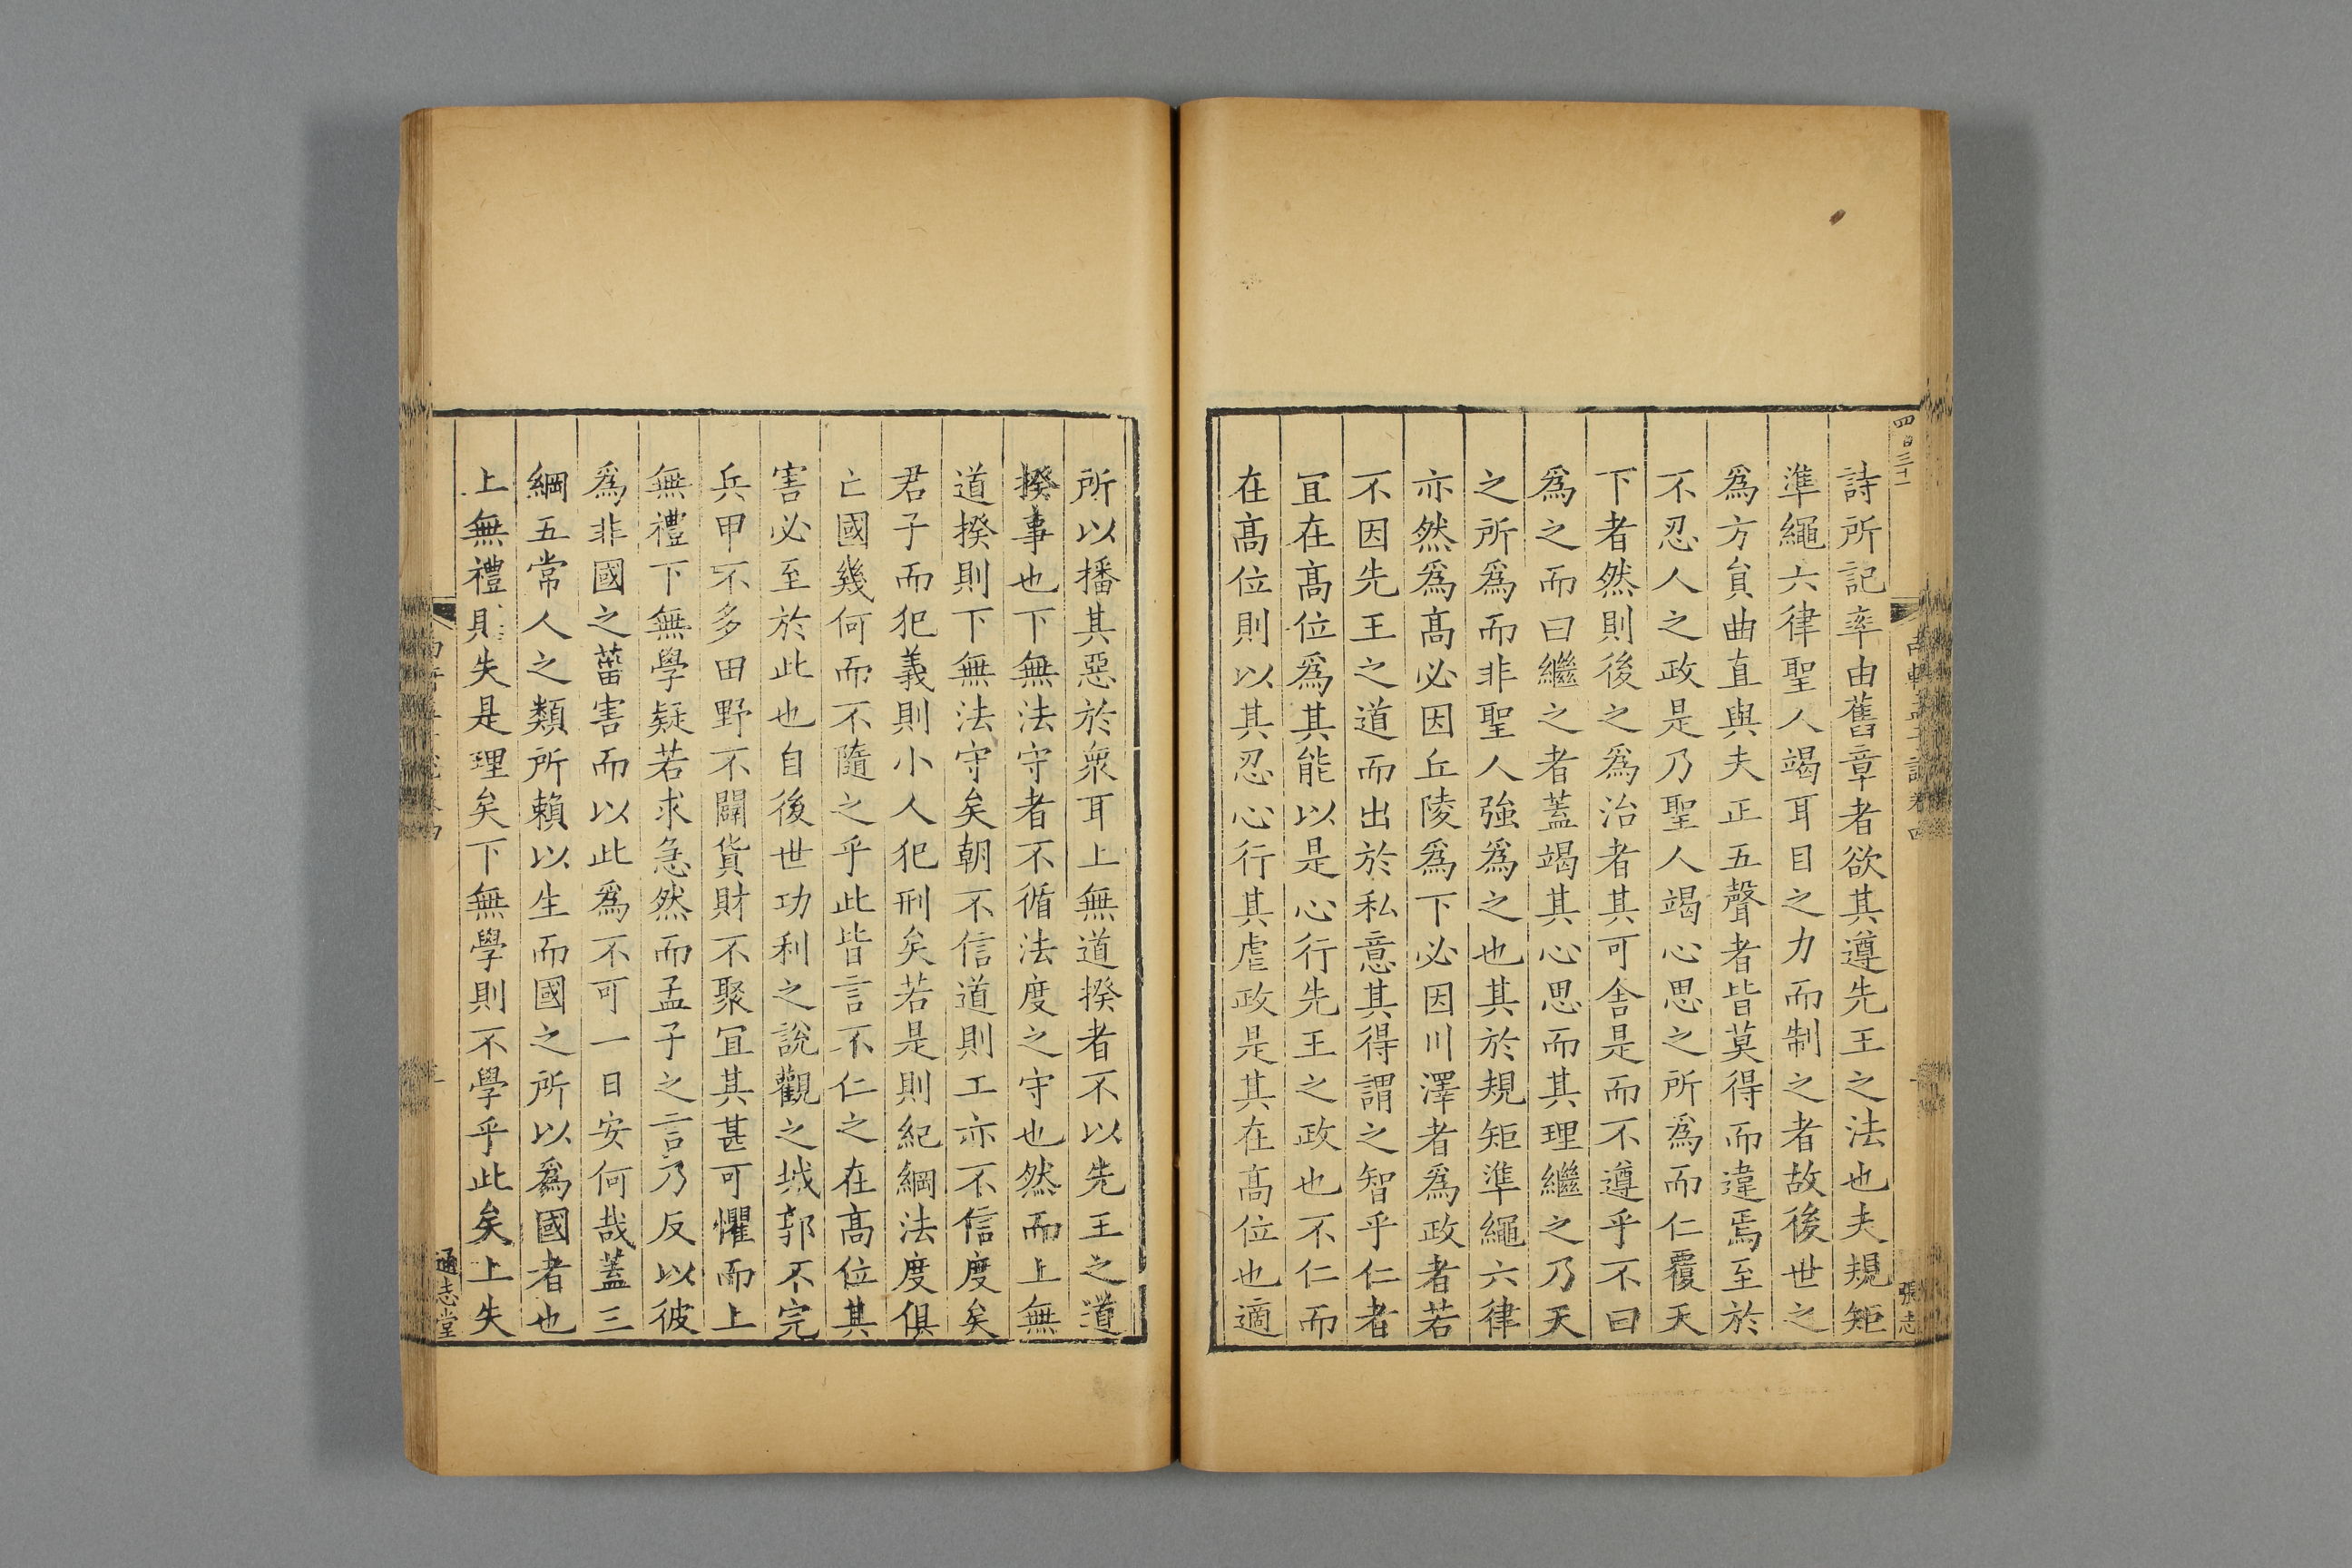 四百三十
詩所記率由舊章者欲其遵先王之法也夫規矩
準繩六律聖人竭耳目之力而制之者故後世之
爲方貟曲直與夫正五聲者皆莫得而違焉至於
不忍人之政是乃聖人竭心思之所爲而仁覆天
下者然則後之爲治者其可舍是而不遵乎不曰
爲之而曰繼之者蓋竭其心思而其理繼之乃天
之所爲而非聖人強爲之也其於規矩準繩六律
亦然爲髙必因丘陵爲下必因川澤者爲政者若
不因先王之道而出於私意其得謂之智乎仁者
冝在髙位爲其能以是心行先王之政也不仁而
在髙位則以其忍心行其虐政是其在髙位也適
張志
所以播其惡於衆耳上無道揆者不以先王之道
揆事也下無法守者不循法度之守也然而上無
道揆則下無法守矣朝不信道則工亦不信度矣
君子而犯義則小人犯刑矣若是則紀綱法度俱
亡國幾何而不隨之乎此皆言不仁之在髙位其
害必至於此也自後世功利之說觀之城郭不完
兵甲不多田野不闢貨財不聚冝其甚可懼而上
無禮下無學疑若求急然而孟子之言乃反以彼
爲非國之菑害而以此爲不可一日安何哉蓋三
綱五常人之類所賴以生而國之所以爲國者也
上無禮則失是理矣下無學則不學乎此矣上失
通志堂